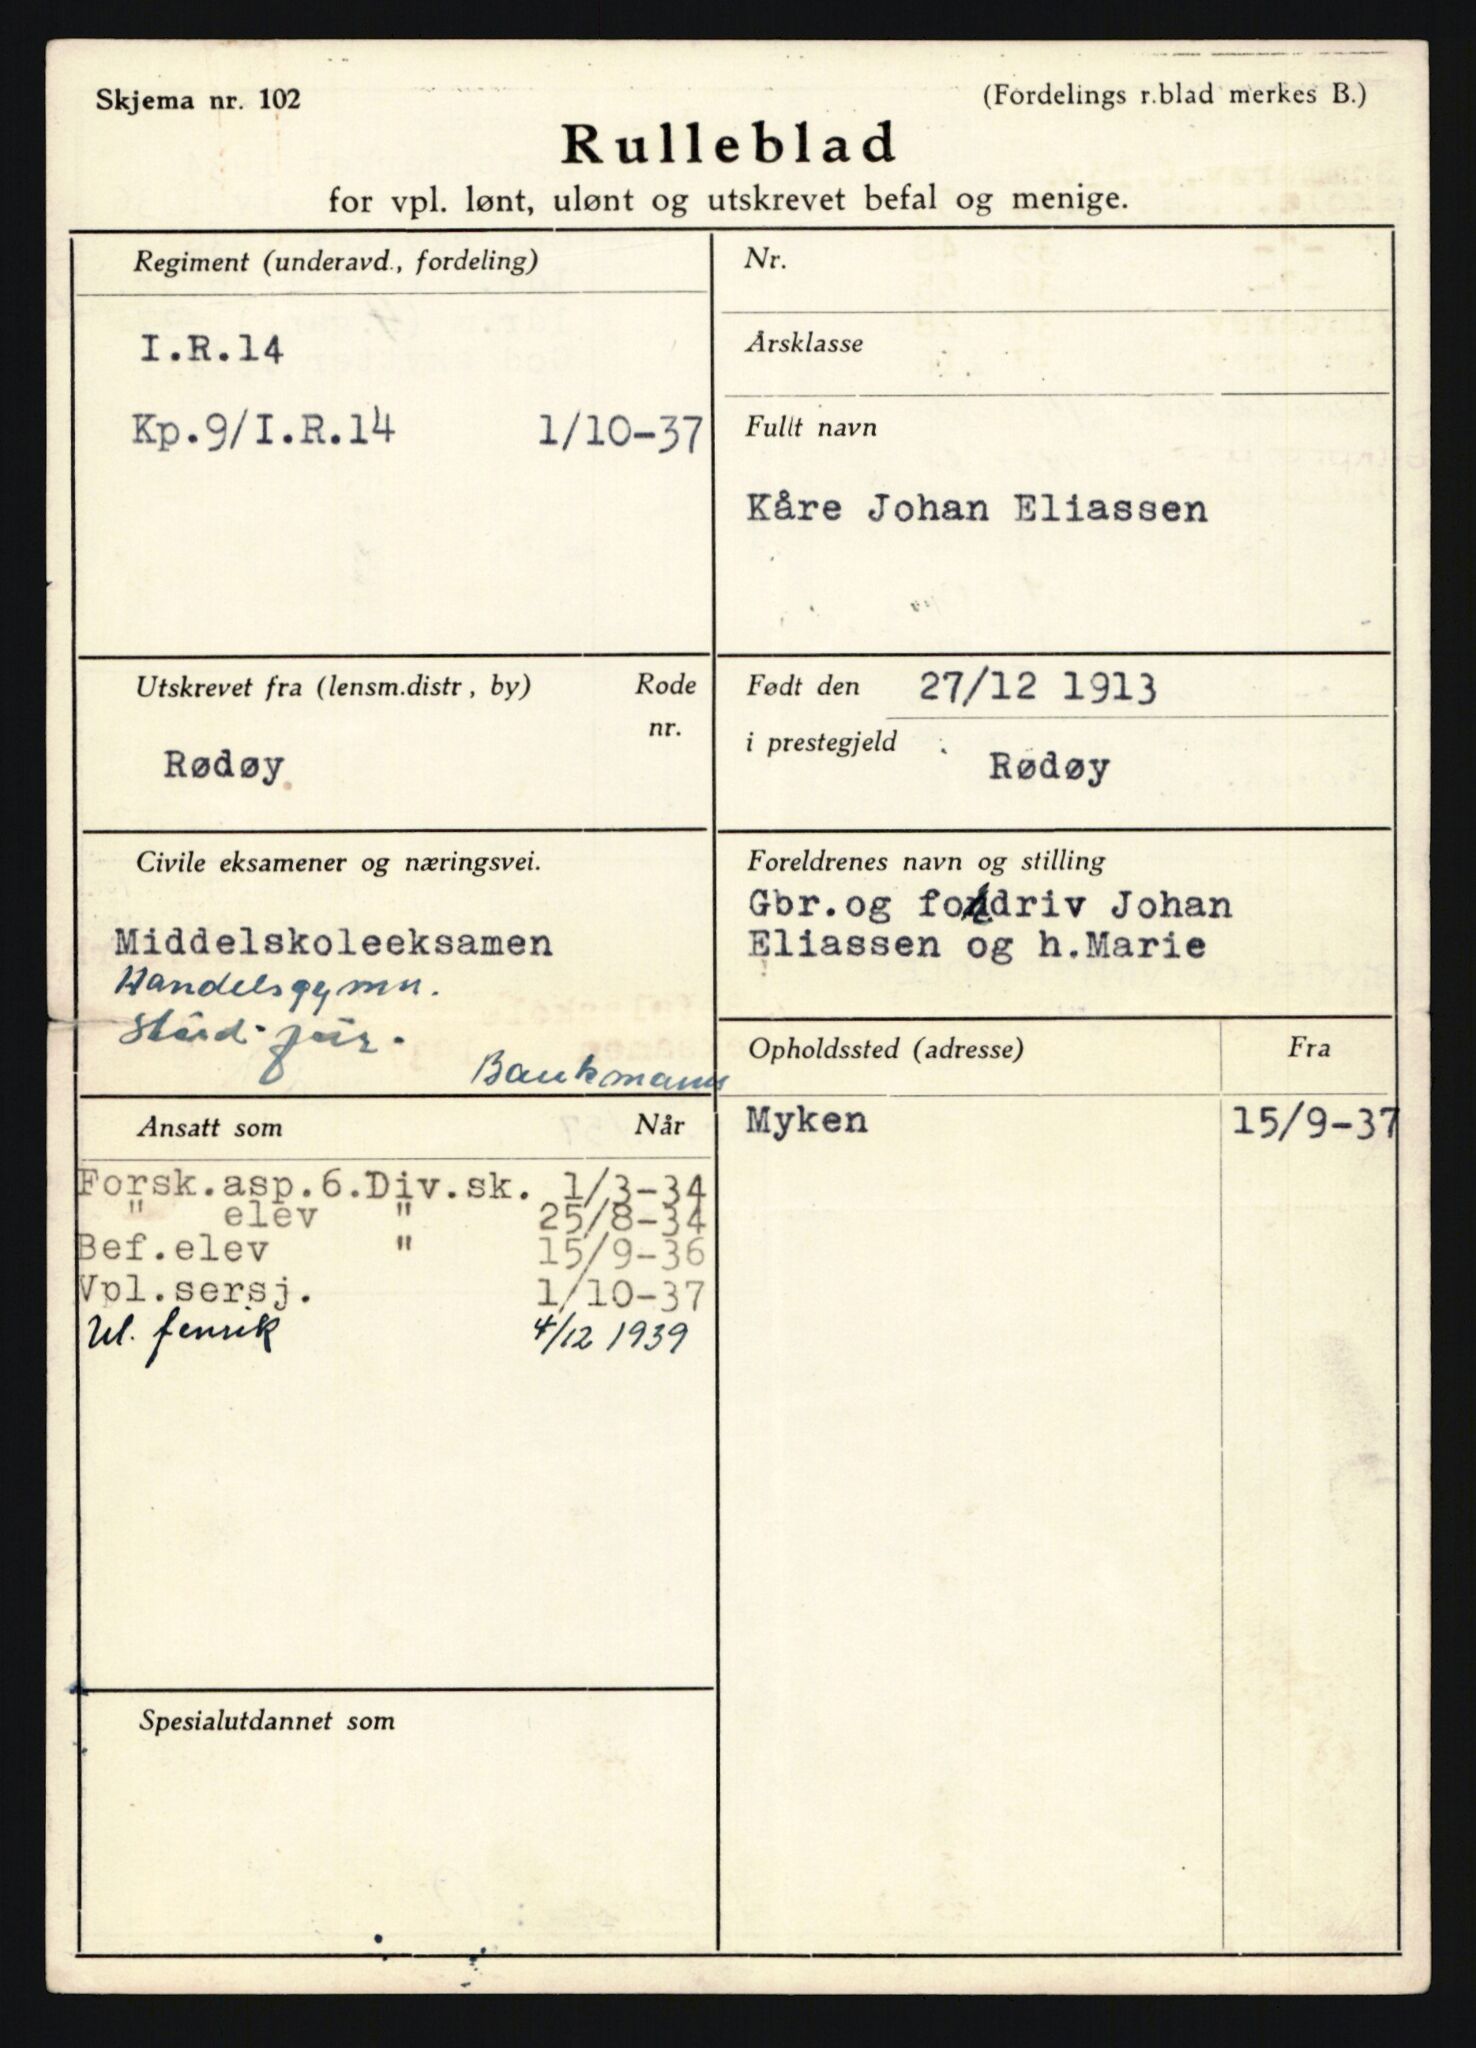 Skjema nr. 102
(Fordelings r.blad merkes B.)
Rulleblad
for vpl. lønt, ulønt og utskrevet befal og menige.
Regiment (underavd., fordeling)
I.R.14
Kp.9/I.R.14 1/10-37
Nr.
Årsklasse
Fullt navn
Kåre Johan Eliassen
Utskrevet fra (lensm.distr, by) Rode
nr.
Rødøy
Født den 27/12 1913
i prestegjeld Rødøy
Civile eksamener og næringsvei.
Middelskoleeksamen
Handelsgymn.
Stud. jur.
Bankmann
Foreldrenes navn og stilling
Gbr.og fordriv Johan
Eliassen og h.Marie
Ansatt som Når
Forsk.asp.6.Div.sk. 1/3-34
" elev " 25/8-34
Bef.elev " 15/9-36
Vpl.sersj. 1/10-37
Ul. fenrik 4/12 1939
Opholdssted (adresse) Fra
Myken 15/9-37
Spesialutdannet som